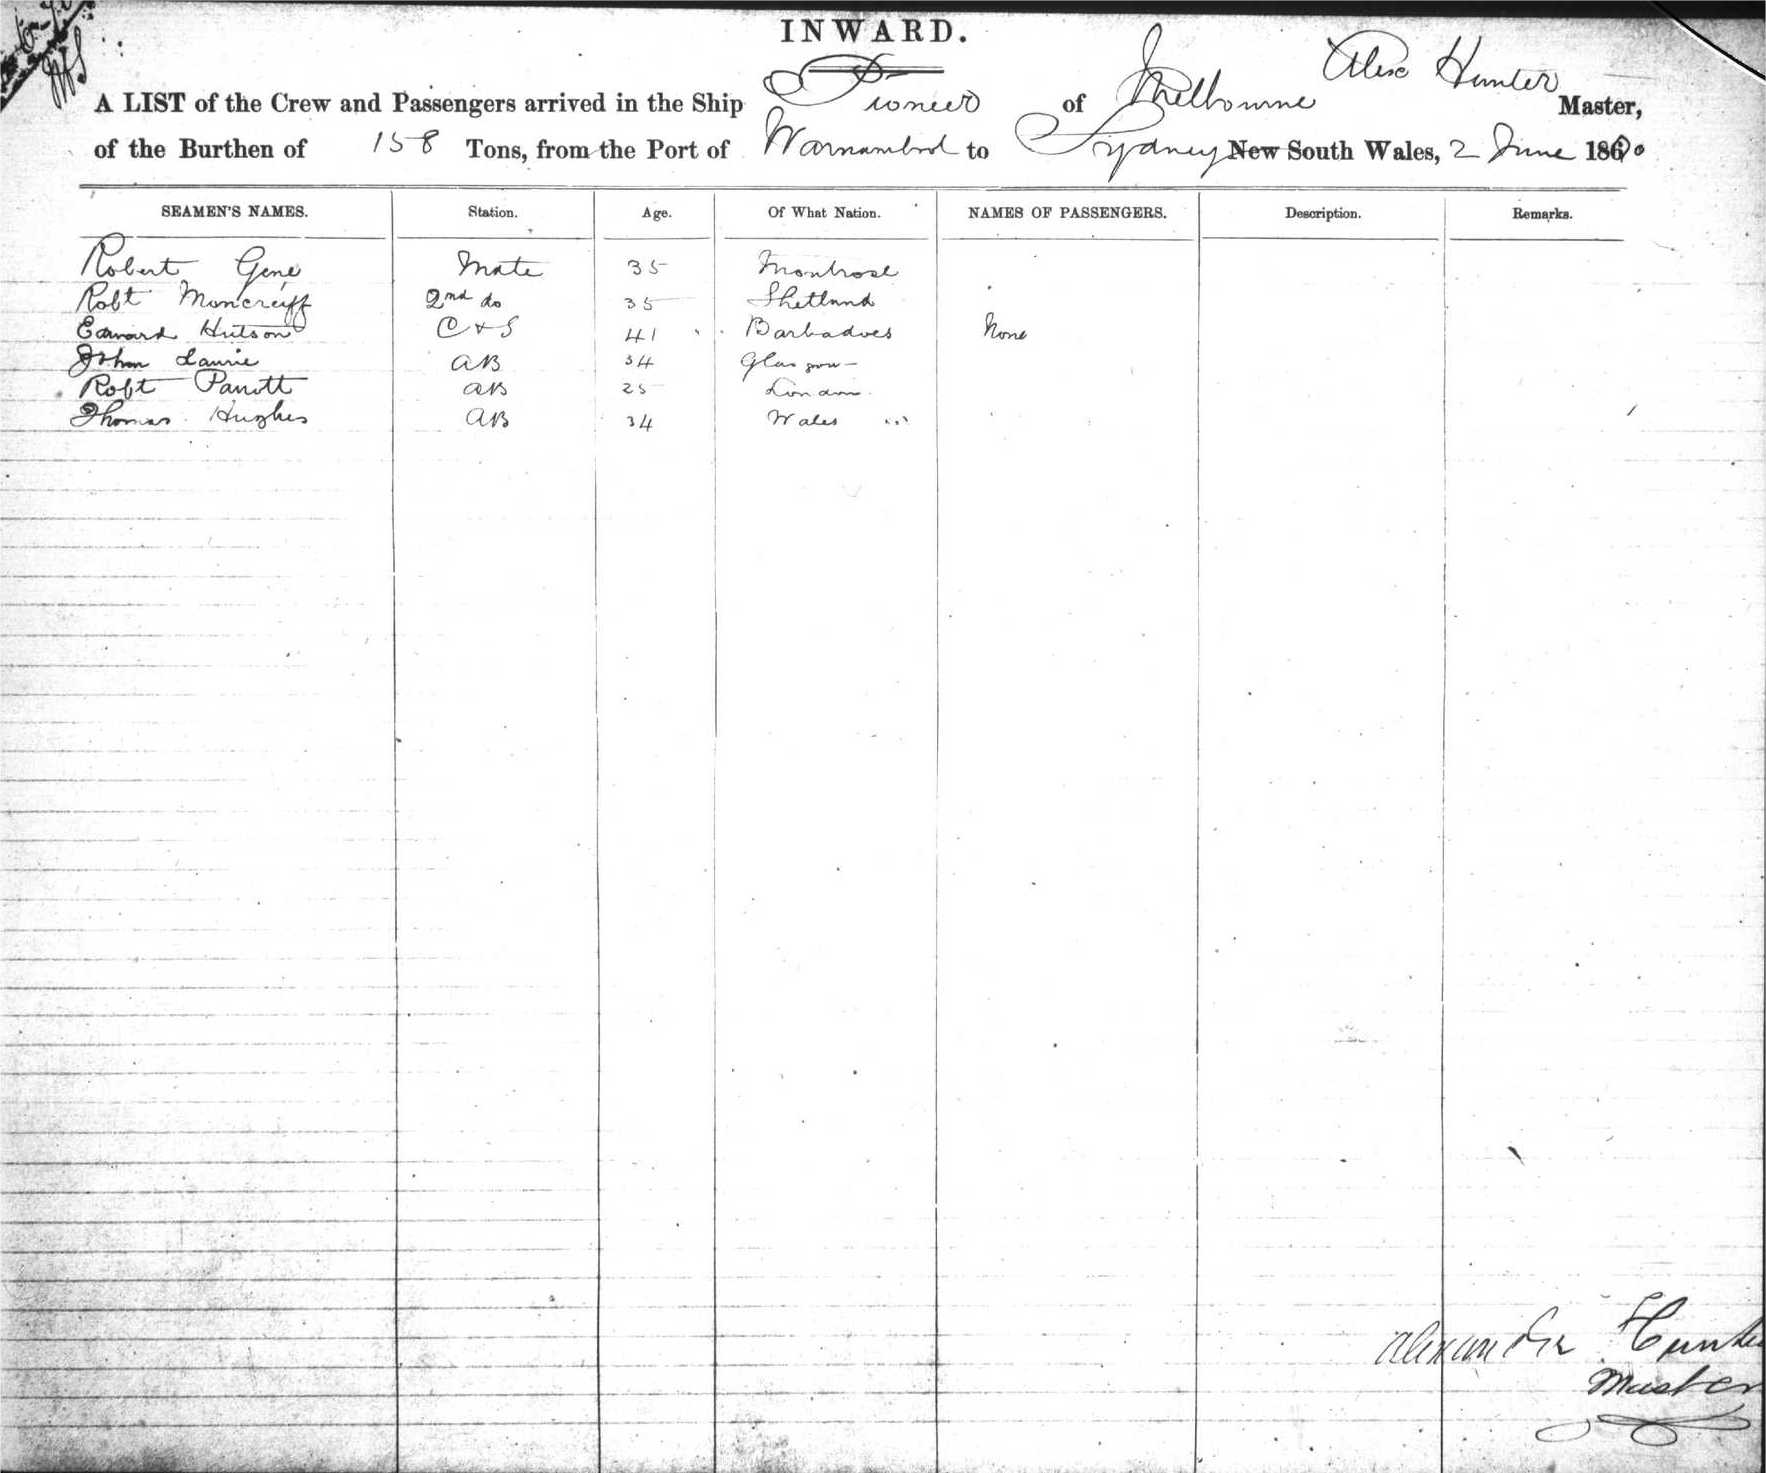 INWARD.
A LIST of the Crew and Passengers arrived in the Ship Pioneer of Melbourne Alex Hunter Master,
of the Burthen of 158 Tons, from the Port of Warnambool to Sydney New South Wales, 2 June 1860
SEAMEN'S NAMES. Station. Age. Of What Nation. NAMES OF PASSENGERS. Description. Remarks.
Robert Gene Mate 35 Montrose
Robt Moncreiff 2nd do 35 Shetland
Edward Hutson C & S 41 Barbadoes None
John Laurie AB 34 Glasgow
Robt Parrott AB 25 London
Thomas Hughes AB 34 Wales
Alexander Hunter
Master